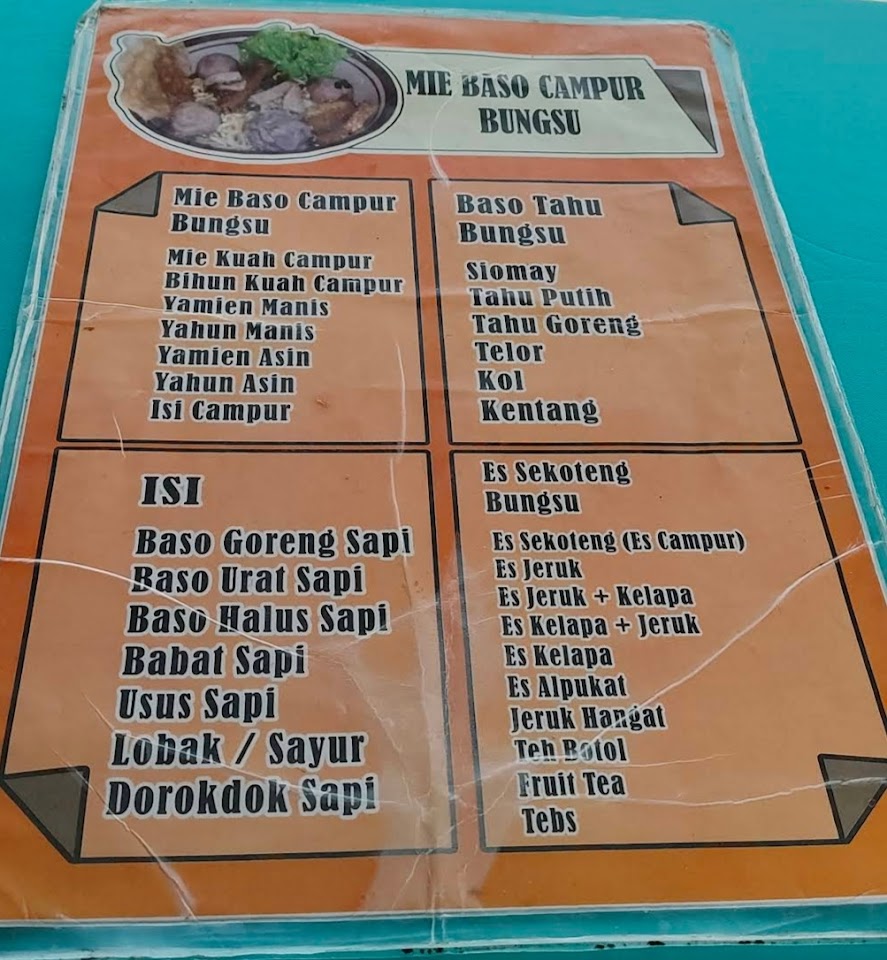 MIE BASO CAMPUR
BUNGSU
Mie Baso Campur
Bungsu
Mie Kuah Campur
Bihun Kuah Campur
Yamien Manis
Yahun Manis
Yamien Asin
Yahun Asin
Isi Campur
Baso Tahu
Bungsu
Siomay
Tahu Putih
Tahu Goreng
Telor
Kol
Kentang
ISI
Baso Goreng Sapi
Baso Urat Sapi
Baso Halus Sapi
Babat Sapi
Usus Sapi
Lobak / Sayur
Dorokdok Sapi
Es Sekoteng
Bungsu
Es Sekoteng (Es Campur)
Es Jeruk
Es Jeruk + Kelapa
Es Kelapa + Jeruk
Es Kelapa
Es Alpukat
Jeruk Hangat
Teh Botol
Fruit Tea
Tebs